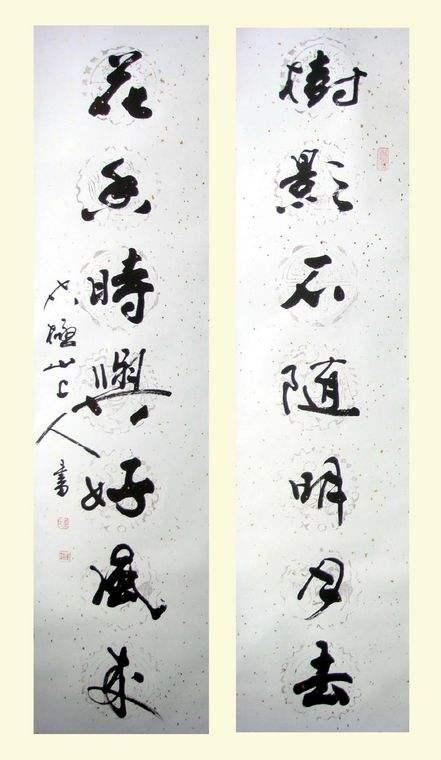 樹影不隨明月去
花香時與好風來
極上人書